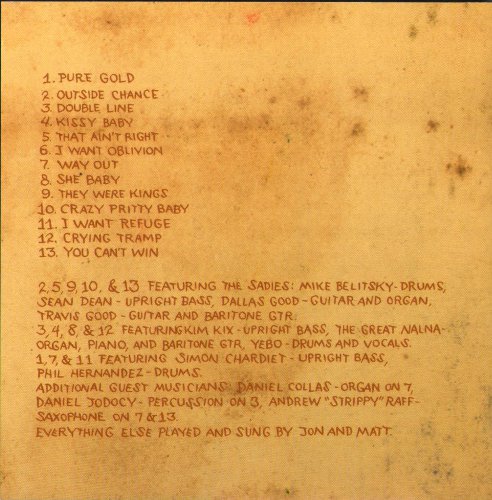 1. PURE GOLD
2. OUTSIDE CHANCE
3. DOUBLE LINE
4. KISSY BABY
5. THAT AIN'T RIGHT
6. I WANT OBLIVION
7. WAY OUT
8. SHE BABY
9. THEY WERE KINGS
10. CRAZY PRITTY BABY
11. I WANT REFUGE
12. CRYING TRAMP
13. YOU CAN'T WIN
2,5,9,10, & 13 FEATURING THE SADIES: MIKE BELITSKY-DRUMS,
SEAN DEAN - UPRIGHT BASS, DALLAS GOOD - GUITAR AND ORGAN,
TRAVIS GOOD - GUITAR AND BARITONE GTR.
3,4,8, & 12 FEATURINGKIM KIX - UPRIGHT BASS, THE GREAT NALNA-
ORGAN, PIANO, AND BARITONE GTR, YEBO - DRUMS AND VOCALS.
1,7, & 11 FEATURING SIMON CHARDIET - UPRIGHT BASS,
PHIL HERNANDEZ - DRUMS.
ADDITIONAL GUEST MUSICIANS: DANIEL COLLAS - ORGAN ON 7,
DANIEL JODOCY - PERCUSSION ON 3, ANDREW "STRIPPY" RAFF-
SAXOPHONE ON 7 & 13.
EVERYTHING ELSE PLAYED AND SUNG BY JON AND MATT.